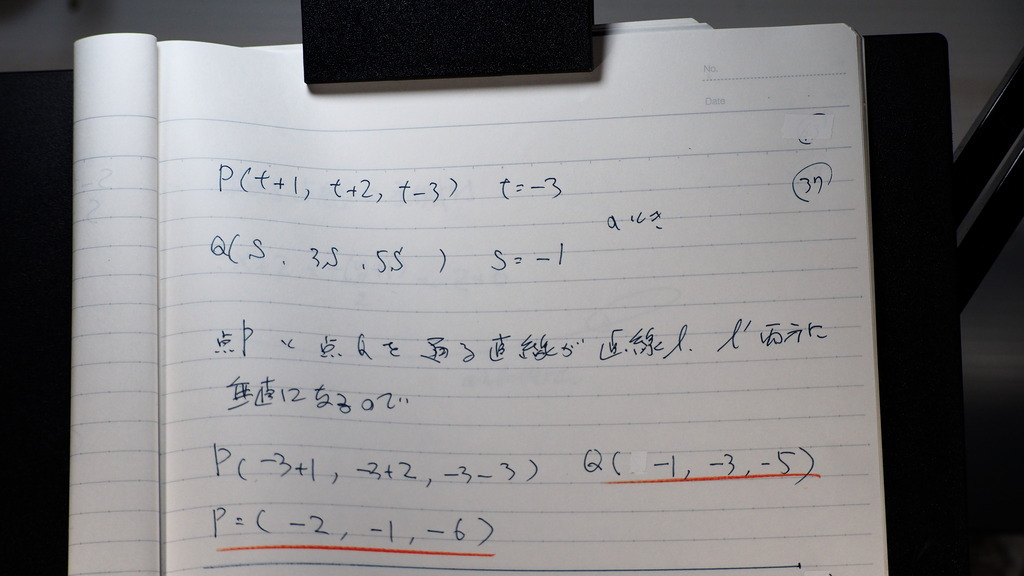 No.
Date
P(t+1, t+2, t-3) t=-3
37
のとき
Q(S, 3S, 5S) S=-1
点Pと点Qを通る直線が直線l, l'両方に
垂直になるので
P(-3+1, -3+2, -3-3) Q( -1, -3, -5)
P=(-2, -1, -6)